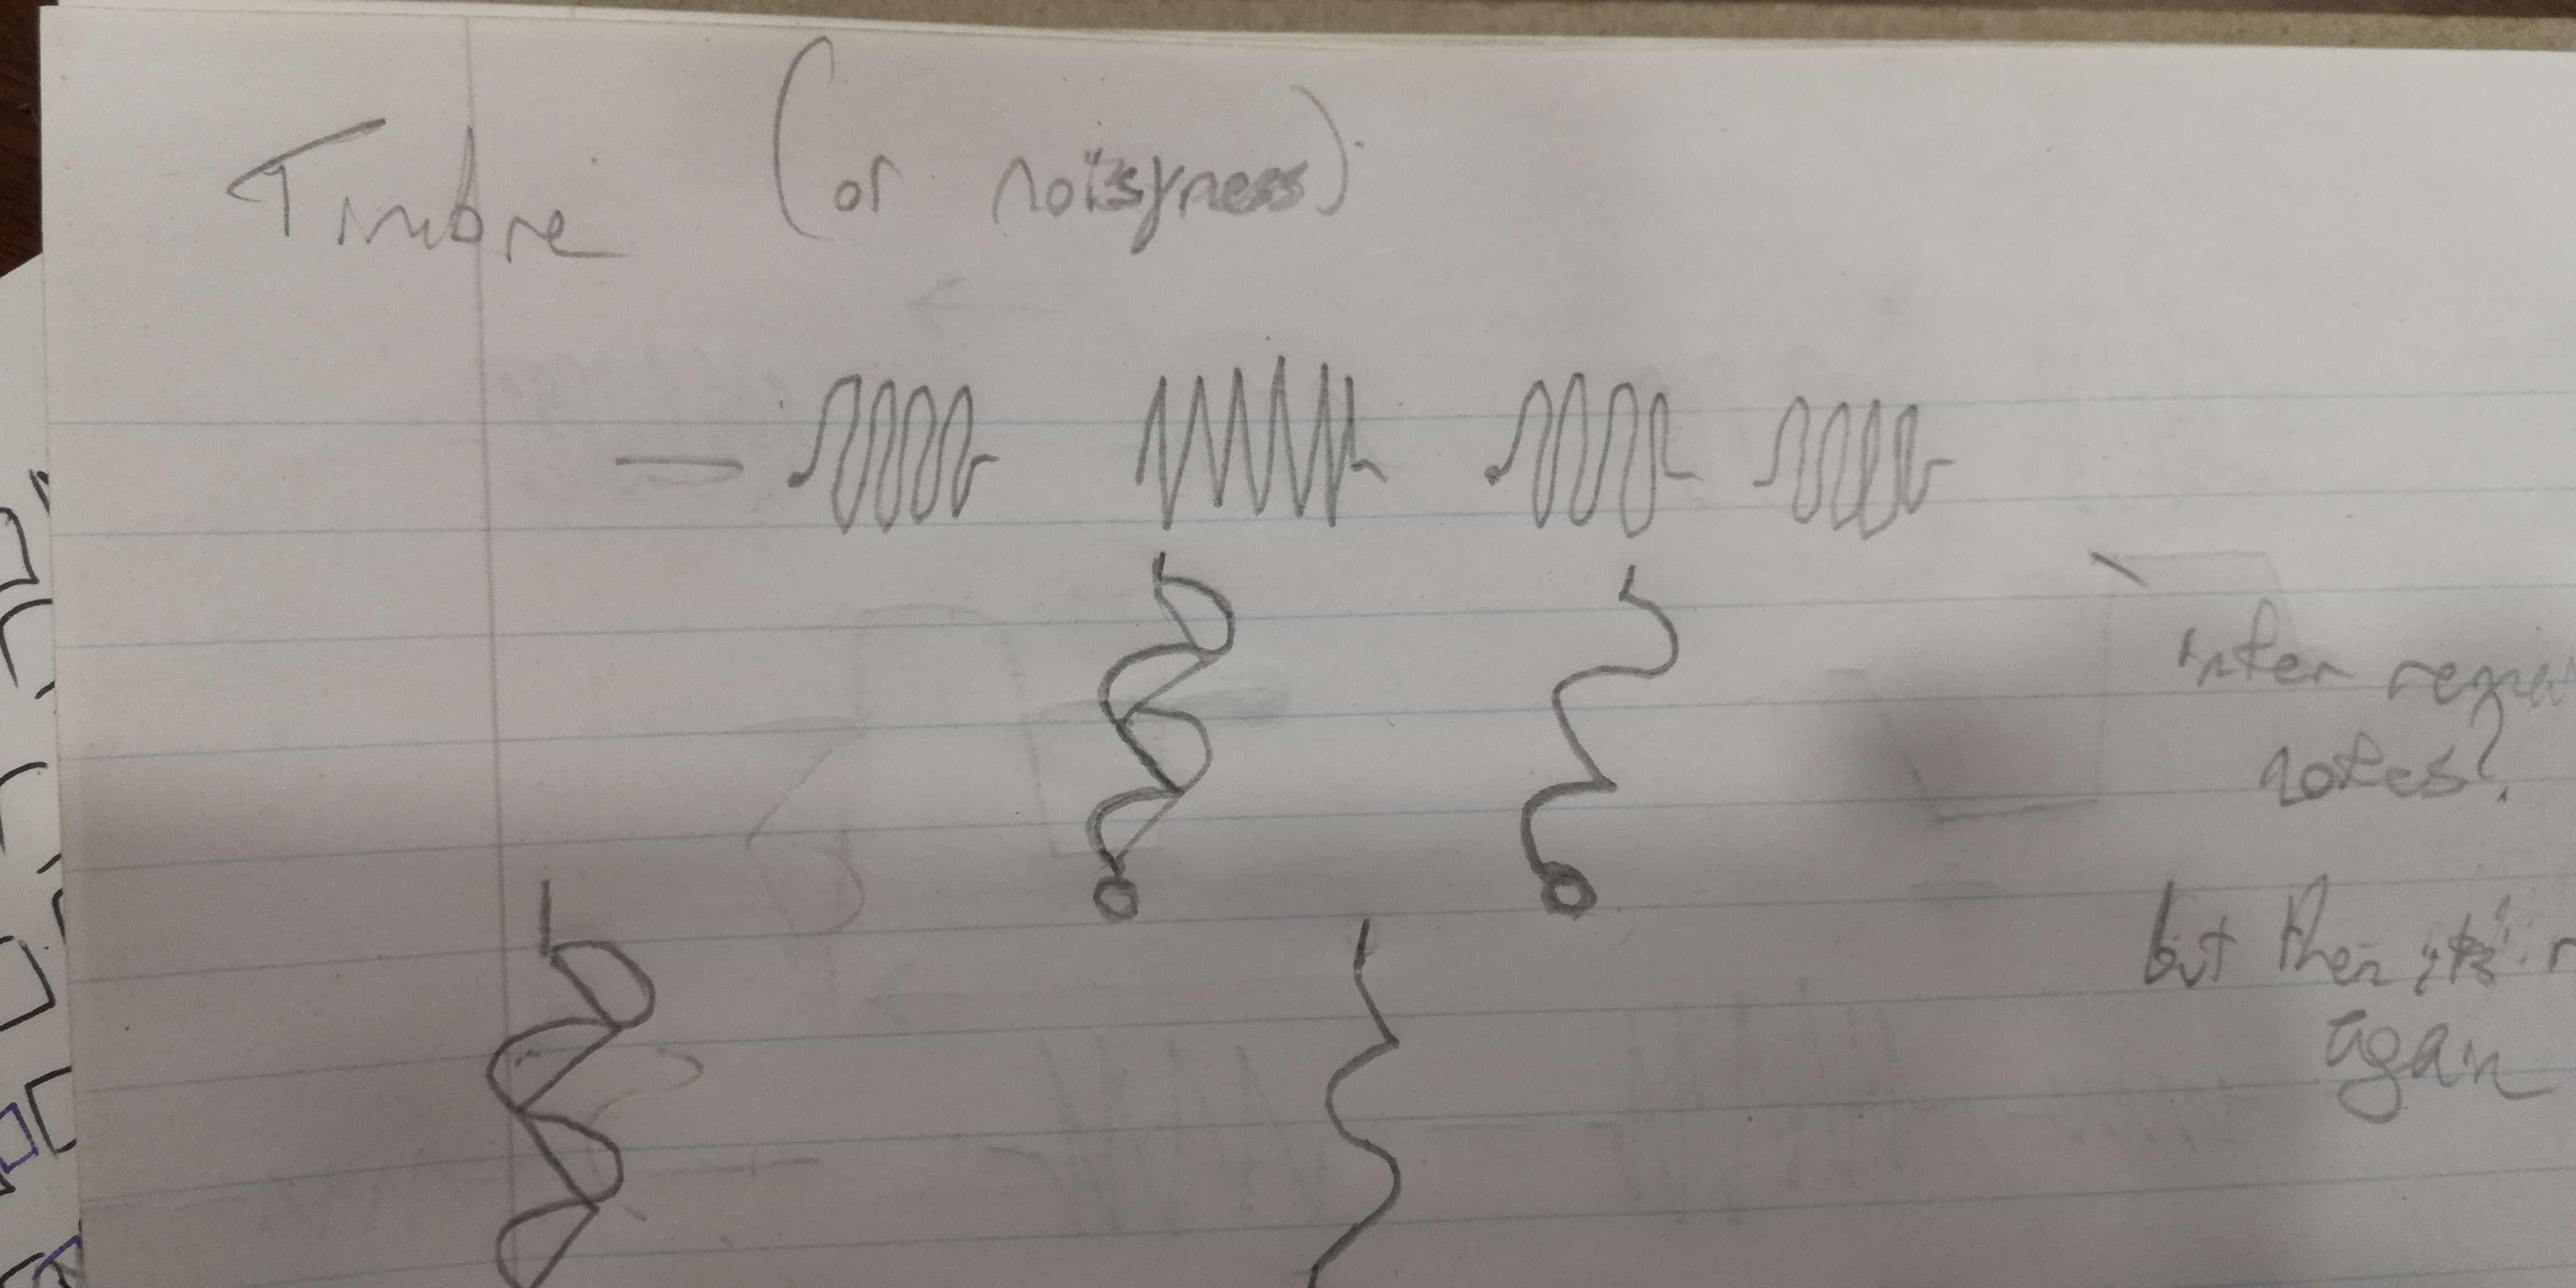 Timbre (or noisyness)
inter
notes?
but then it's
again